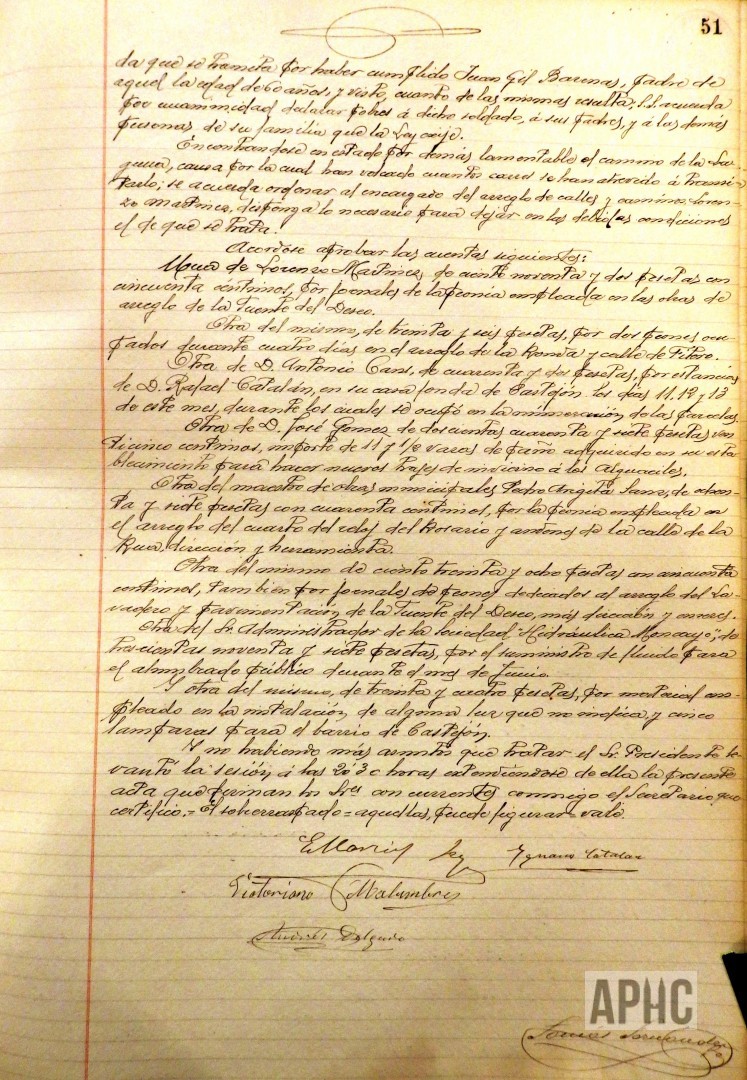 51
da que se tramita por haber cumplido Juan Gil Barenas, padre de
aquel la edad de 60 años, y visto, cuanto de las mismas resulta, S.S. acuerda
por unanimidad declarar pobres á dicho soldado, á sus padres, y á las demás
personas de su familia que la Ley exije.
Encontrandose en estado por demás lamentable el camino de la La-
guna, causa por la cual han volcado cuantos carros se han atrevido á transi-
tarlo; se acuerda ordenar al encargado del arreglo de calles y caminos Loren-
zo Martinez, disponga lo necesario para dejar en las debidas condiciones
el de que se trata.
Acordóse aprobar las cuentas siguientes:
Una de Lorenzo Martinez, de ciento noventa y dos pesetas con
cincuenta céntimos, por jornales de la peonia empleada en las obras de
arreglo de la Fuente del Deseo.
Otra del mismo, de treinta y seis pesetas, por dos peones ocu-
pados durante cuatro días, en el arreglo de la Ronda y calle de Fitero.
Otra de D. Antonio Cans, de cuarenta y dos pesetas, por estancias
de D. Rafael Catalán, en su casa fonda de Castejón los días 11, 12 y 13
de este mes, durante los cuales se ocupó en la numeración de las parcelas.
Otra de D. José Gomez de doscientas cuarenta y siete pesetas vein
ticinco centimos, importe de 11 y 1/2 varas de paño adquirido en su esta
blecimiento para hacer nuevos trajes de invierno á los Alguaciles.
Otra del maestro de obras municipales Pedro Angita Sanz, de ochen-
ta y siete pesetas con cuarenta céntimos, por la peonia empleada en
el arreglo del cuarto del reloj del Rosario y andenes de la calle de la
Rua, dirección y herramienta.
Otra del mismo de ciento treinta y ocho pesetas con cincuenta
centimos, tambien por jornales de peones dedicados al arreglo del La-
vadero y pavimentación de la Fuente del Deseo, más dirección y enseres.
Otra del Sr. Administrador de la sociedad "Hidráulica Moncayo", de
trescientas noventa y siete pesetas, por el suministro de fluido para
el alumbrado público durante el mes de Junio.
Y otra del mismo, de treinta y cuatro pesetas, por material em-
pleado en la instalación, de alguna luz que no indica, y cinco
lamparas para el barrio de Castejón.
Y no habiendo más asuntos que tratar el Sr. Presidente le
vantó la sesión á las 20'30 horas extendiéndose de ella la presente
acta que firman los Sres concurrentes conmigo el Secretario, que
certifico.= El sobrerraspado = aquellas, puede figurar = vale.
Ignacio Catalan
Victoriano Malumbres
Andrés Delgado
APHC